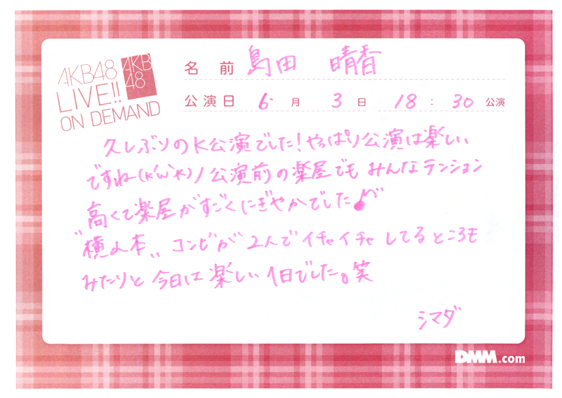 AKB48
LIVE!!
ON DEMAND
AKB
48
名 前 島田 晴香
公演日 6 月 3 日 18 : 30 公演
久しぶりのK公演でした!やっぱり公演は楽しい
ですね(*'ω'*)ノ公演前の楽屋でもみんなテンション
高くて楽屋がすごくにぎやかでした♪
"横山本"コンビが2人でイチャイチャしてるところも
みたりと今日は楽しい1日でした。笑
シマダ
DMM.com